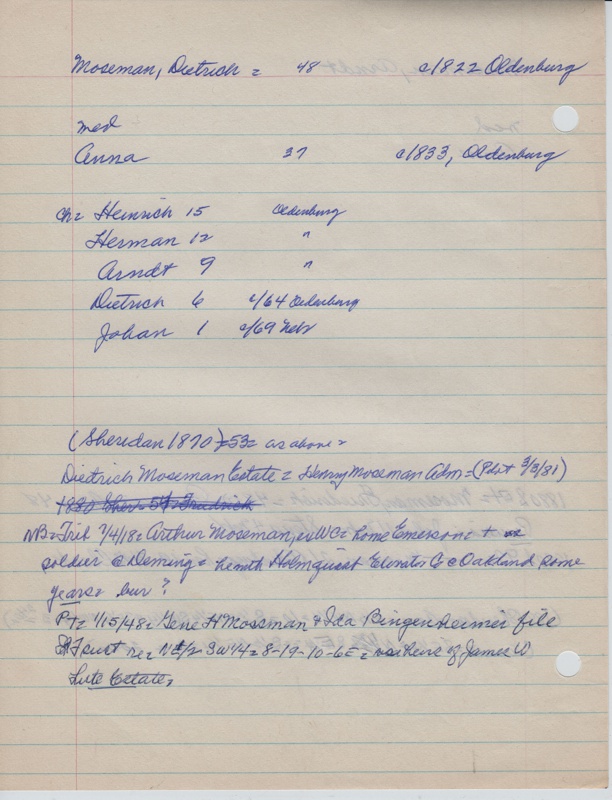 Moseman, Dietrich = 48 c/1822 Oldenburg
med
Anna 37 c/1833, Oldenburg
Ch= Heinrich 15 Oldenburg
Herman 12 "
Arndt 9 "
Dietrich 6 c/64 Oldenburg
Johan 1 c/69 Nebr
(Sheridan 1870)=53= as above=
Dietrich Moseman Estate = Henry Moseman Adm=(Pilot 3/3/81)
1880 Sher= 54=
NB=Trib 7/4/18= Arthur Moseman, ex WC= home Emerson +
soldier @ Deming = he with Holmquist Elevator Co @ Oakland some
years= bur?
PT= 1/15/48= Gene H Mossman + Ida Bingenheimer file
re= N 1/2 SW 1/4=8-19-10-6E= heirs of James W
Lute Estate=